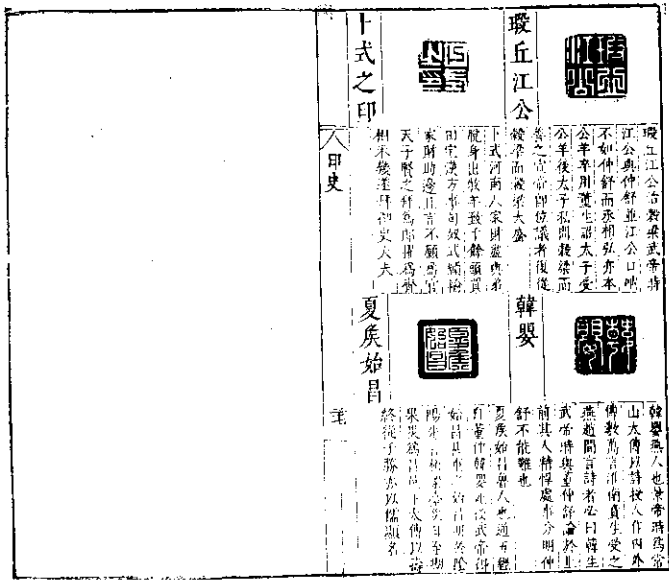 瑕丘江公
瑕丘江公治穀梁武帝時
江公與仲舒並江公口吶
不如仲舒而丞相弘亦本
公羊卒用董生詔太子受
公羊後太子私問穀梁而
善之宣帝即位議者復從
穀梁而穀梁大盛
卜式之印
卜式河南人家財盡與弟
脫身出牧羊致千餘頭買
田宅漢方事匈奴式願輸
家財助邊且言不願爲官
天子賢之拜爲郎擢爲齊
相未幾遂拜御史大夫
韓嬰
韓嬰燕人也景帝時爲常
山太傅以詩授人作內外
傳數萬言淮南賁生受之
燕趙間言詩者必曰韓生
武帝時與董仲舒論於上
前其人精悍處事分明仲
舒不能難也
夏侯始昌
夏侯始昌魯人也通五經
自董仲韓嬰死後武帝得
始昌甚重之始昌明於陰
陽先言柏梁臺災日至期
果災爲昌邑王太傅以壽
終從子勝亦以儒顯名
印史